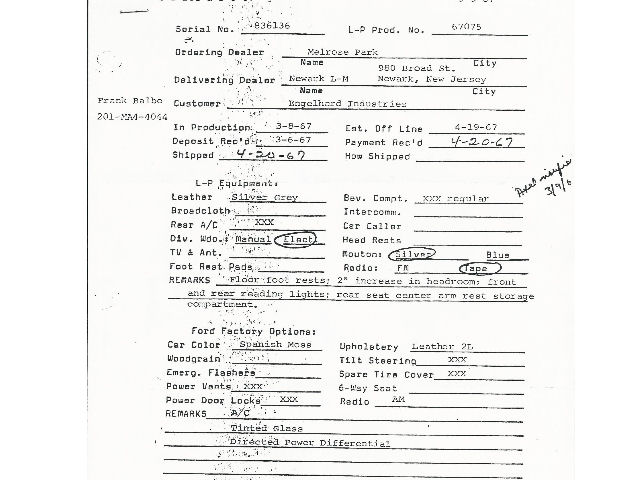 Serial No. 836136 L-P Prod. No. 67075
Ordering Dealer Melrose Park
Name City
980 Broad St.
Delivering Dealer Newark L-M Newark, New Jersey
Name City
Frank Balbo Customer Engelhard Industries
201-MA4-4044
In Production 3-8-67 Est. Off Line 4-19-67
Deposit Rec'd 3-6-67 Payment Rec'd 4-20-67
Shipped 4-20-67 How Shipped
3/9/6
L-P Equipment:
Leather Silver Grey Bev. Compt. XXX regular
Broadcloth Intercomm.
Rear A/C XXX Car Caller
Div. Wdo.: Manual Elect Head Rests
TV & Ant. Mouton: Silver Blue
Foot Rest Pads Radio: FM Tape
REMARKS Floor foot rests; 2" increase in headroom; front
and rear reading lights; rear seat center arm rest storage
compartment.
Ford Factory Options:
Car Color Spanish Moss Upholstery Leather 2L
Woodgrain Tilt Steering XXX
Emerg. Flashers Spare Tire Cover XXX
Power Vents XXX 6-Way Seat
Power Door Locks XXX Radio AM
REMARKS A/C
Tinted Glass
Directed Power Differential